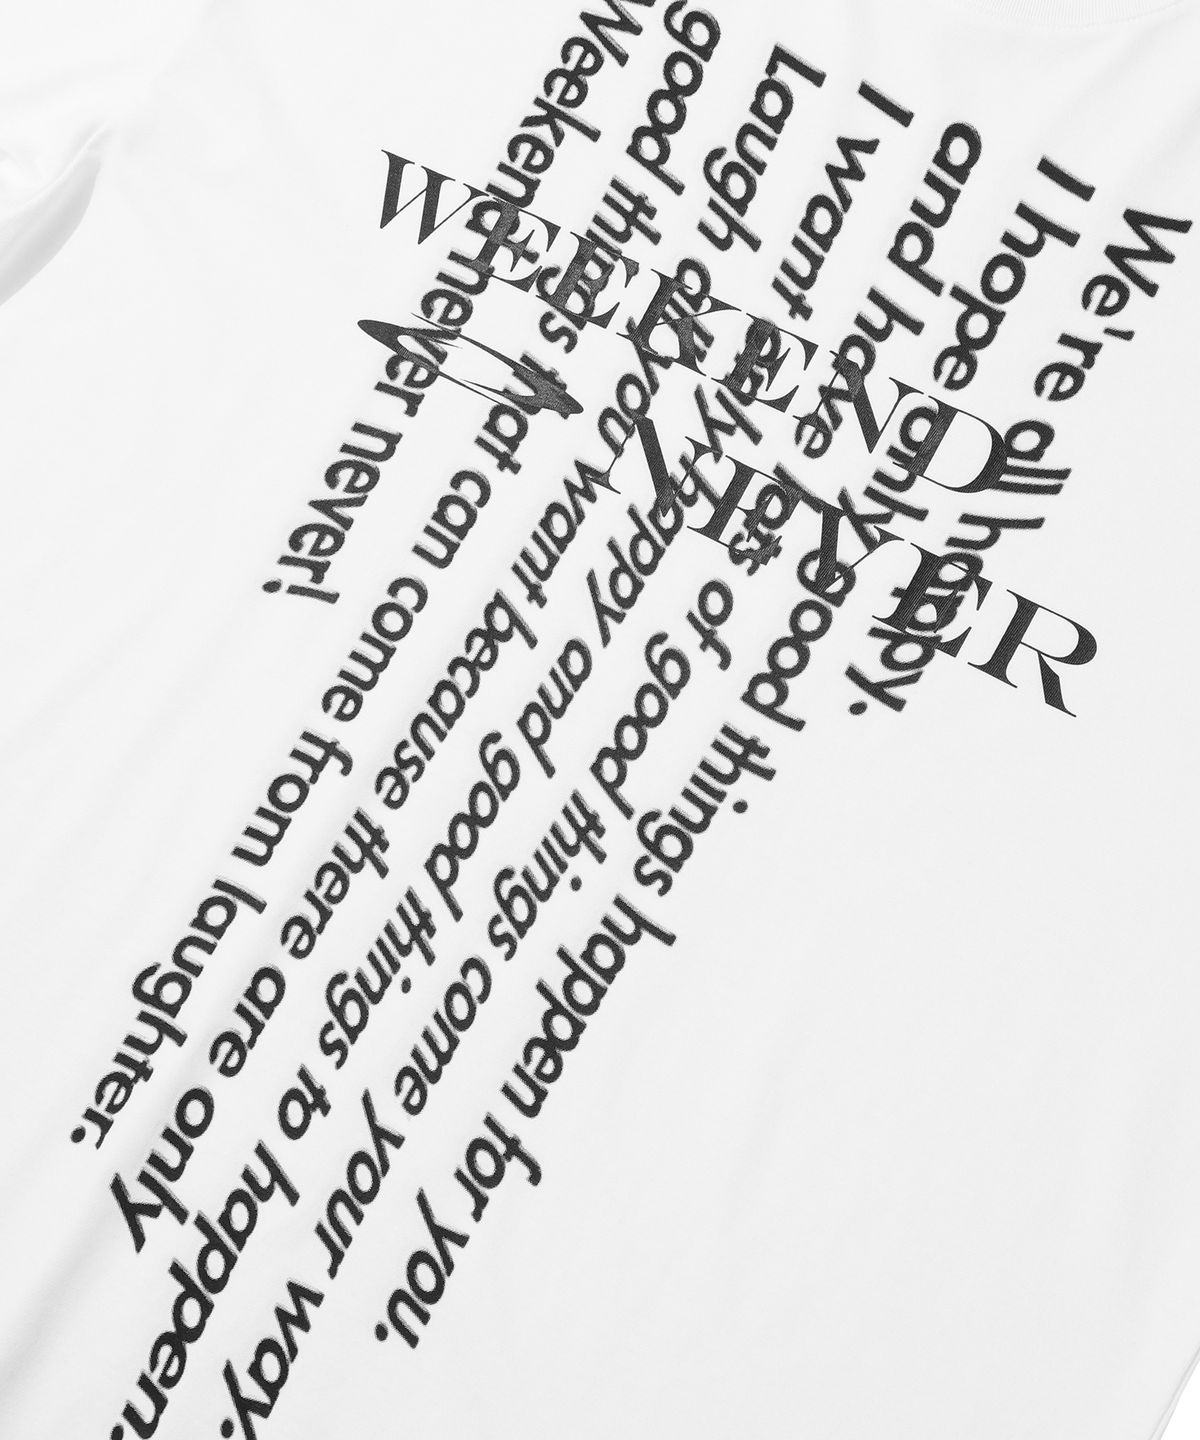 We're all happy.
I hope only good things happen for you.
and have lots of good things come your way.
I want only happy and good things to happen.
Laugh all you want because there are only
good things that can come from laughter.
Weekend never never!
WEEKEND
NEVER